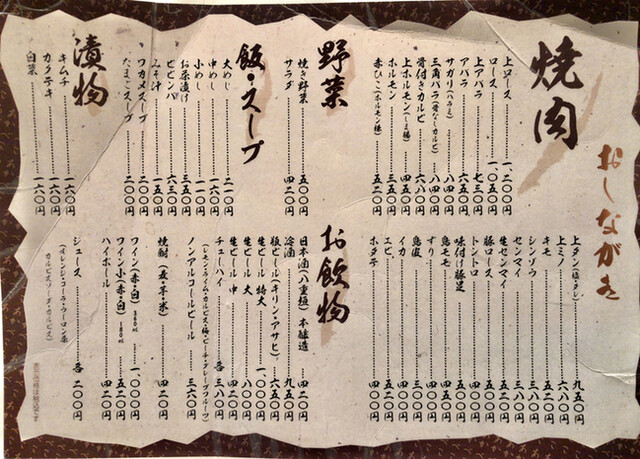 おしながき
焼肉
上ロース 一、二〇〇円
ロース 一、〇五〇円
上アバラ 七三〇円
アバラ 六五〇円
サガリ(ハラミ) 八四〇円
三角バラ(骨なしカルビ) 八四〇円
骨付きカルビ 六八〇円
上ホルモン(しま腸) 四五〇円
ホルモン 三五〇円
赤ひこ(ホルモン腸) 五二〇円
上タン(塩・タレ) 九五〇円
上ミノ 六八〇円
キモ 五二〇円
シンゾウ 三八〇円
センマイ 五二〇円
生センマイ 五二〇円
豚ロース 五二〇円
トントロ 五二〇円
味付け豚足 五二〇円
鳥モモ 四五〇円
すり 四〇〇円
鳥皮 三五〇円
イカ 四〇〇円
エビ 四〇〇円
ホタテ 四〇〇円
野菜
焼き野菜 五〇〇円
サラダ 四二〇円
飯・スープ
大めし 二一〇円
中めし 一六〇円
小めし 一一〇円
お茶漬け 三一〇円
ビビンバ 六三〇円
みそ汁 一五〇円
ワカメスープ 二〇〇円
たまごスープ 二〇〇円
漬物
キムチ 一六〇円
カクテキ 一六〇円
白菜 一六〇円
お飲物
日本酒(八重垣)本醸造 四二〇円
冷酒 九五〇円
瓶ビール(キリン・アサヒ) 六五〇円
生ビール 特大 一、〇〇〇円
生ビール 大 八〇〇円
生ビール 中 四二〇円
チューハイ 各 三八〇円
(レモン・ライム・カルピス・梅・ピーチ・グレープフルーツ)
ノンアルコールビール 三六〇円
焼酎(麦・芋・米) 四二〇円
ワイン(赤・白)360ml 一、〇〇〇円
ワイン小(赤・白)180ml 五二〇円
ハイボール 四二〇円
ジュース 各 二〇〇円
(オレンジ・コーラ・ウーロン茶
カルピスソーダ・カルピス)